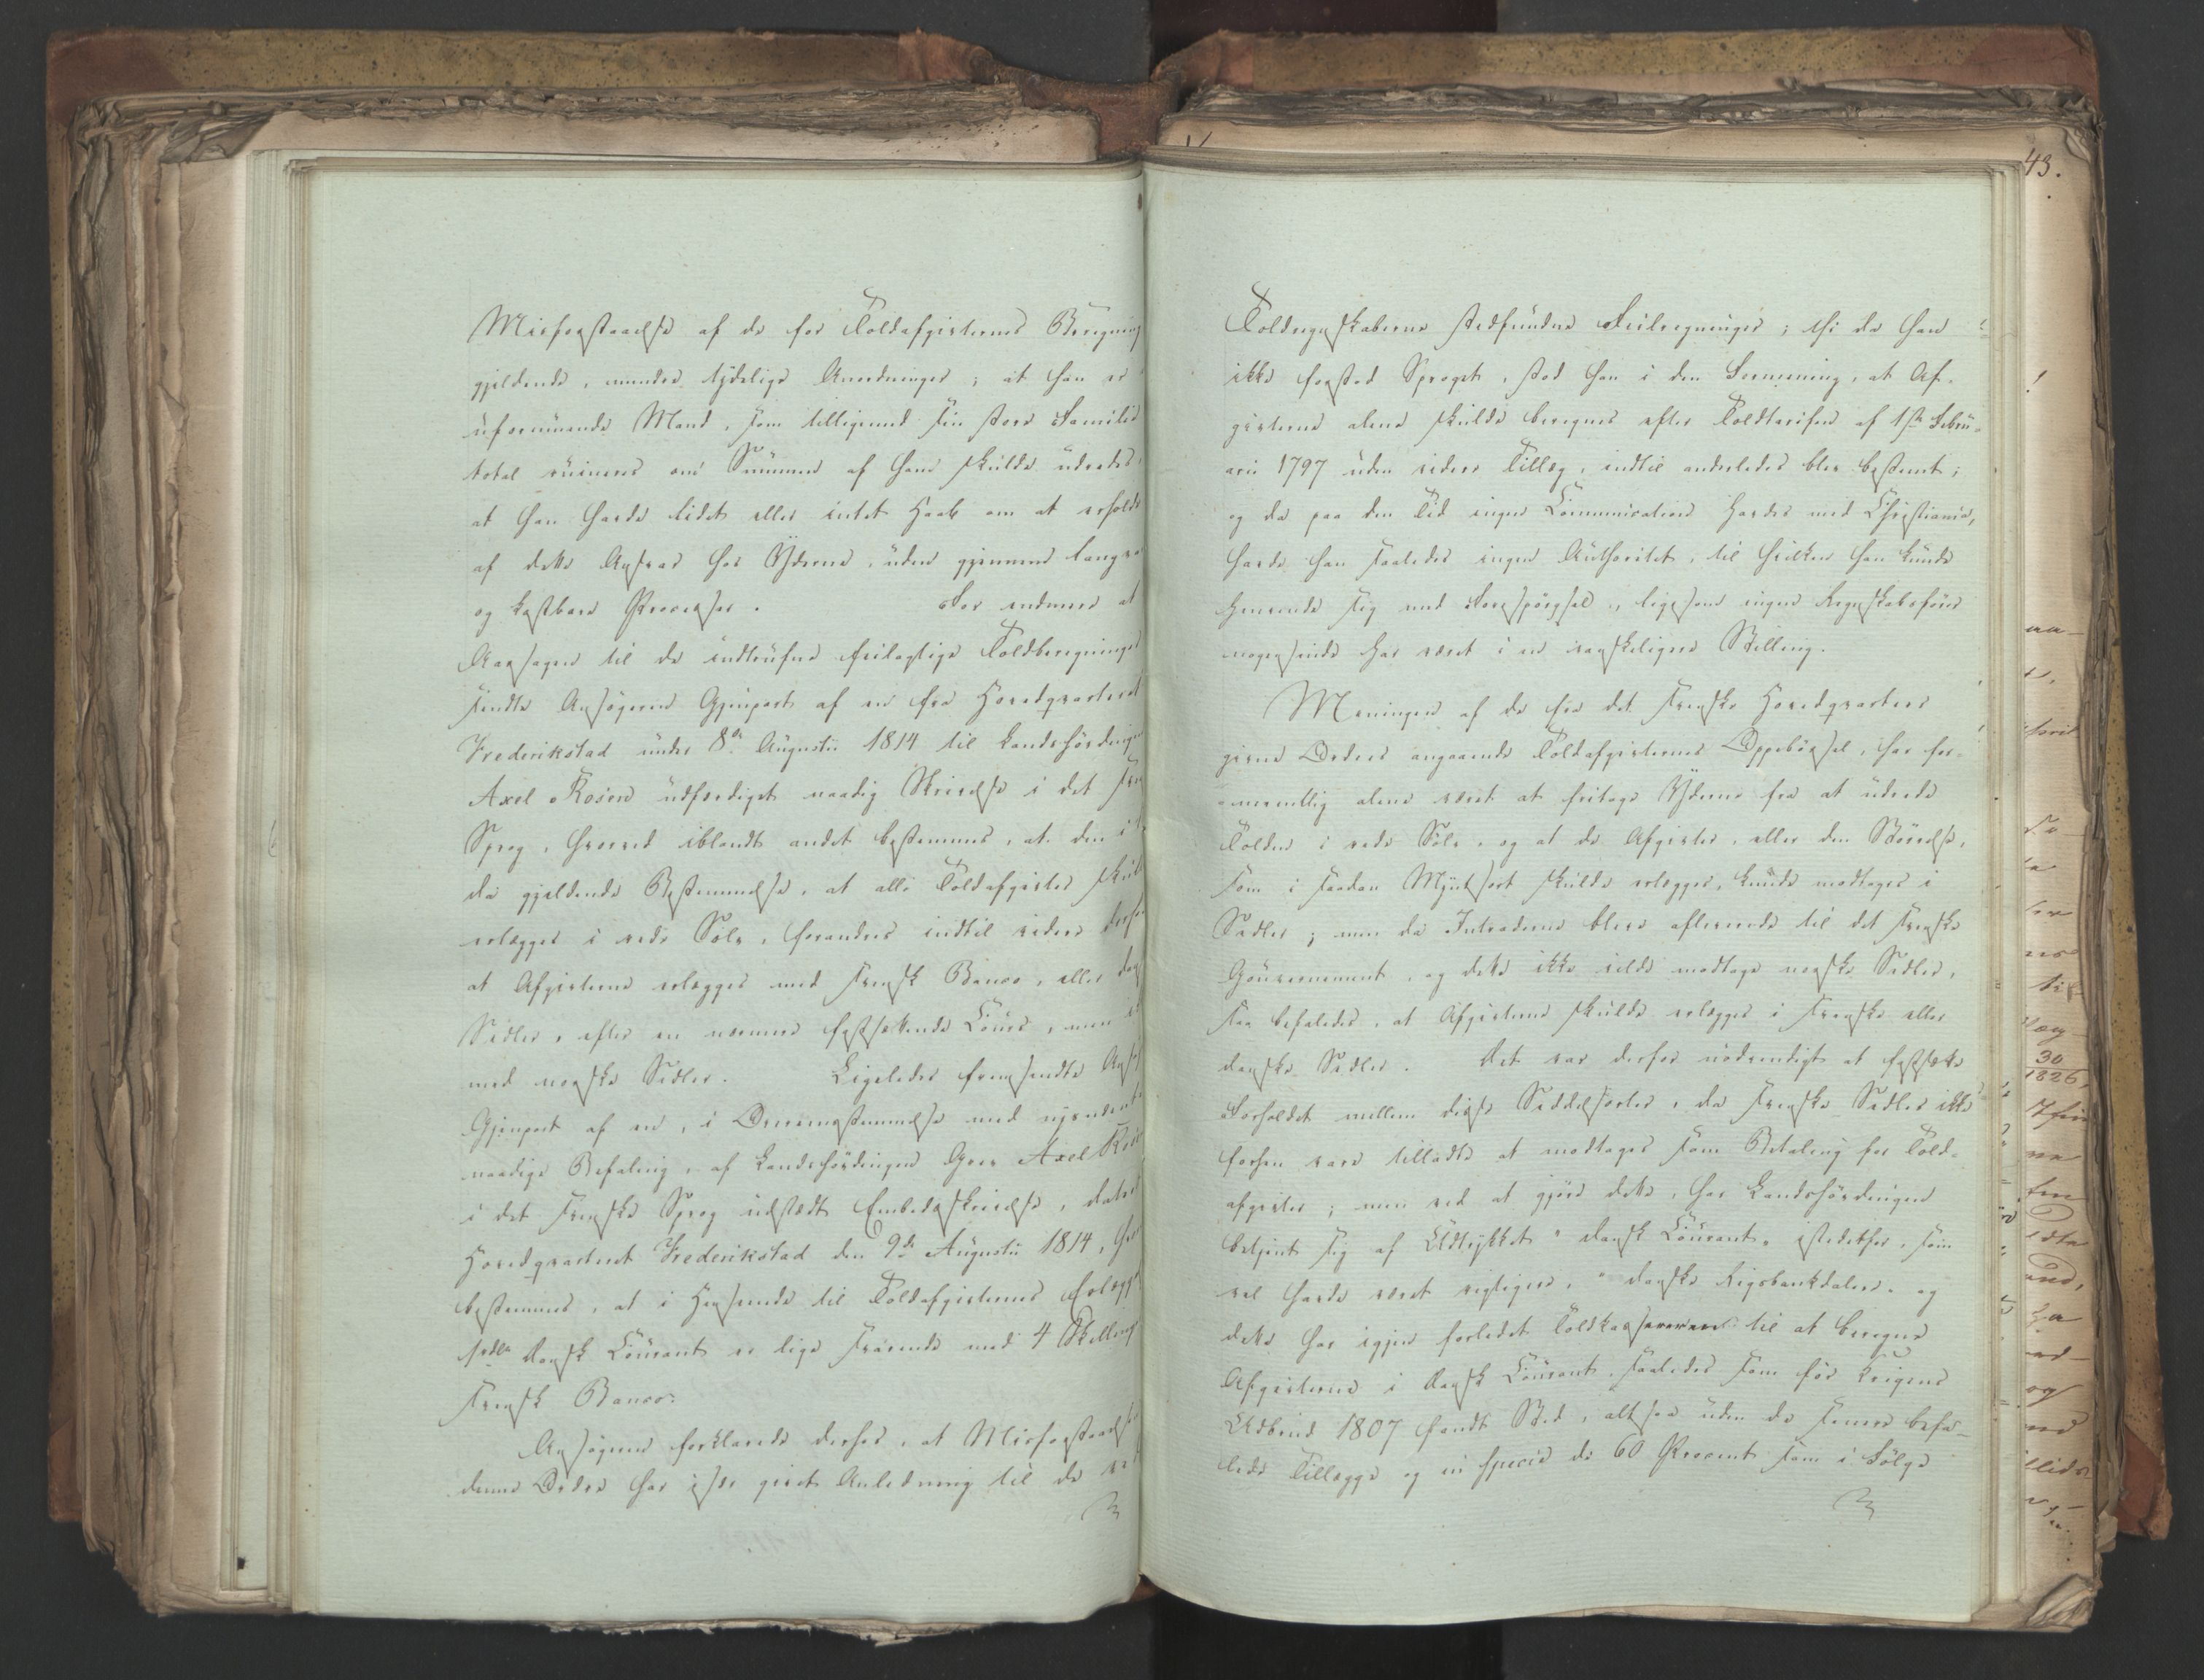 Misforstaaelse af de for Toldafgifternes Beregning
gjeldende, mindre tydelige Anordninger; at han er
uformuende Mand, som tilligemed sin store Familie
total ruineres om Summen af ham skulde udredes,
at han havde lidet eller intet Haab om at erholde
af dette Ansvar hos Yderne, uden gjennem lang
og kostbare Processer. For endmere at
Aarsagen til de indtrufne feilagtige Toldberegninger
sendte Ansøgeren Gjenpart af en fra Hovedqvarteret
Frederikstad under 8de Augusti 1814 til Landshövdingen
Axel Rosen udfærdiget naadig Skrivelse i det
Sprog, hvorved iblandt andet bestemmes, at den
da gjeldende Bestemmelse, at alle Toldafgifter
erlægges i rede Sølv, forandres indtil videre
at Afgifterne erlægges med svensk Banco, eller
Sedler, efter en nærmere fastsættende Cours, men
med norske Sedler. Ligeledes fremsendte
Gjenpart af en, i Overensstemmelse med
naadige Befaling, af Landshövdingen Grev Axel
i det svenske Sprog udstædt Embedsskrivelse, dateret
Hovedqvarteret Frederikstad den 9de Augusti 1814,
bestemmes, at i Henseende til Toldafgifternes
1 rdlr dansk Courant er lige svarende med 4 Skilling
svensk Banco.
Ansøgeren forklarede derhos, at Misforstaaelse
denne Ordre har især givet Anledning til de
43.
Toldregnskaberne stedfundne Feilregninger; thi da han
ikke forstod Sproget, stod han i den Formening, at Af-
gifterne alene skulde beregnes efter Toldtarifen af 1ste Febru-
arii 1797 uden videre Tillæg, indtil anderledes blev bestemt;
og da paa den Tid ingen Communication havdes med Christiania,
havde han saaledes ingen Authoritet, til hvilken han kunde
henvende sig med Forespørgsel, ligesom ingen Regnskabsfører
nogensinde har været i en vanskeligere Stilling.
Meningen af de fra det svenske Hovedqvarteer
givne Ordres angaaende Toldafgifternes Oppebørsel, har for-
mentlig alene været at fritage Yderne fra at udrede
Tolden i rede Sølv, og at de Afgifter, eller den Størrelse,
som i saadan Myntsort skulde erlægges, kunde modtages i
Sedler; men da Intraderne bleve afleverede til det svenske
Gouvernement, og dette ikke vilde modtage norske Sedler,
saa befaledes, at Afgifterne skulde erlægges i svenske eller
danske Sedler. Det var derfor nødvendigt at fastsætte
Forholdet mellem disse Seddelsorter, da svenske Sedler ikke
forhen vare tilladte at modtages som Betaling for Told-
afgifter; men ved at gjøre dette, har Landshövdingen
betjent sig af Udtrykket "dansk Courant" istedetfor, som
vel havde været rigtigere, "danske Rigsbankdaler" og
dette har igjen forledet Toldkassereren til at beregne
Afgifterne i dansk Courant, saaledes som før Krigens
Udbrud 1807 fandt Sted, altsaa uden de senere befa-
lede Tillægge og in specie de 60 Procent som i Følge